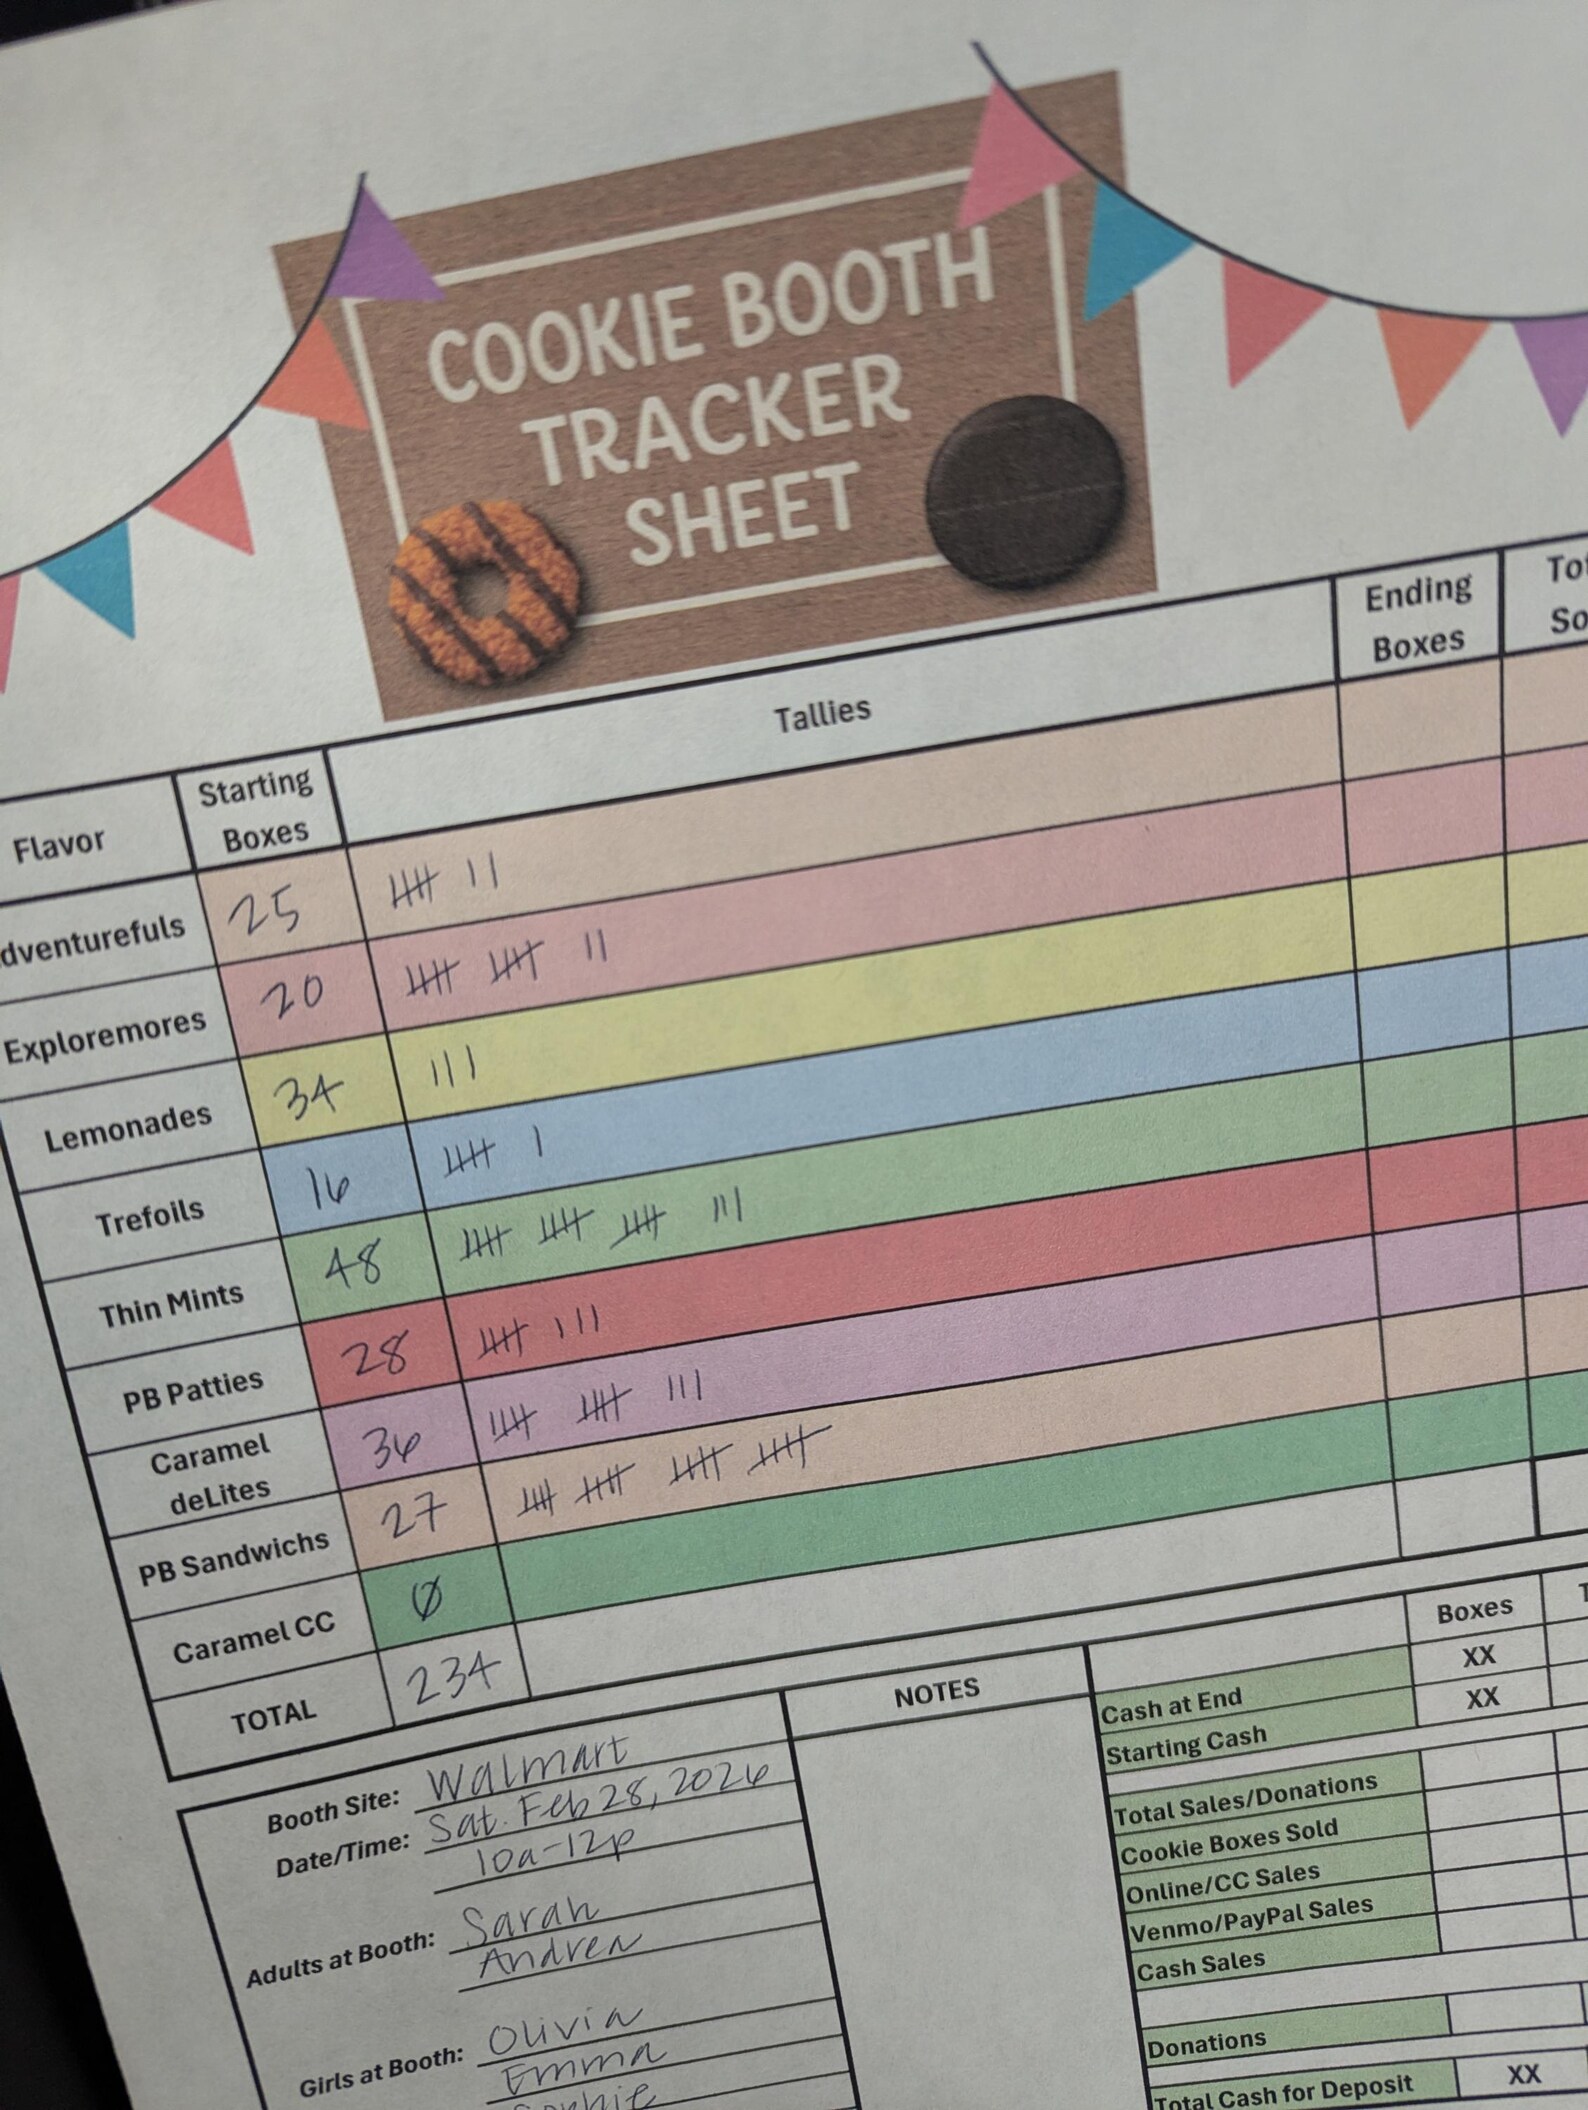 COOKIE BOOTH
TRACKER
SHEET
Flavor Starting Boxes Tallies Ending Boxes
25
Exploremores 20
Lemonades 34
Trefoils 16
Thin Mints 48
PB Patties 28
Caramel deLites 36
PB Sandwichs 27
Caramel CC Ø
TOTAL 234
Booth Site: Walmart
Date/Time: Sat. Feb 28, 2026
10a-12p
Adults at Booth: Sarah
Andrea
Girls at Booth: Olivia
Emma
NOTES
Boxes
Cash at End XX
Starting Cash XX
Total Sales/Donations
Cookie Boxes Sold
Online/CC Sales
Venmo/PayPal Sales
Cash Sales
Donations
Total Cash for Deposit XX